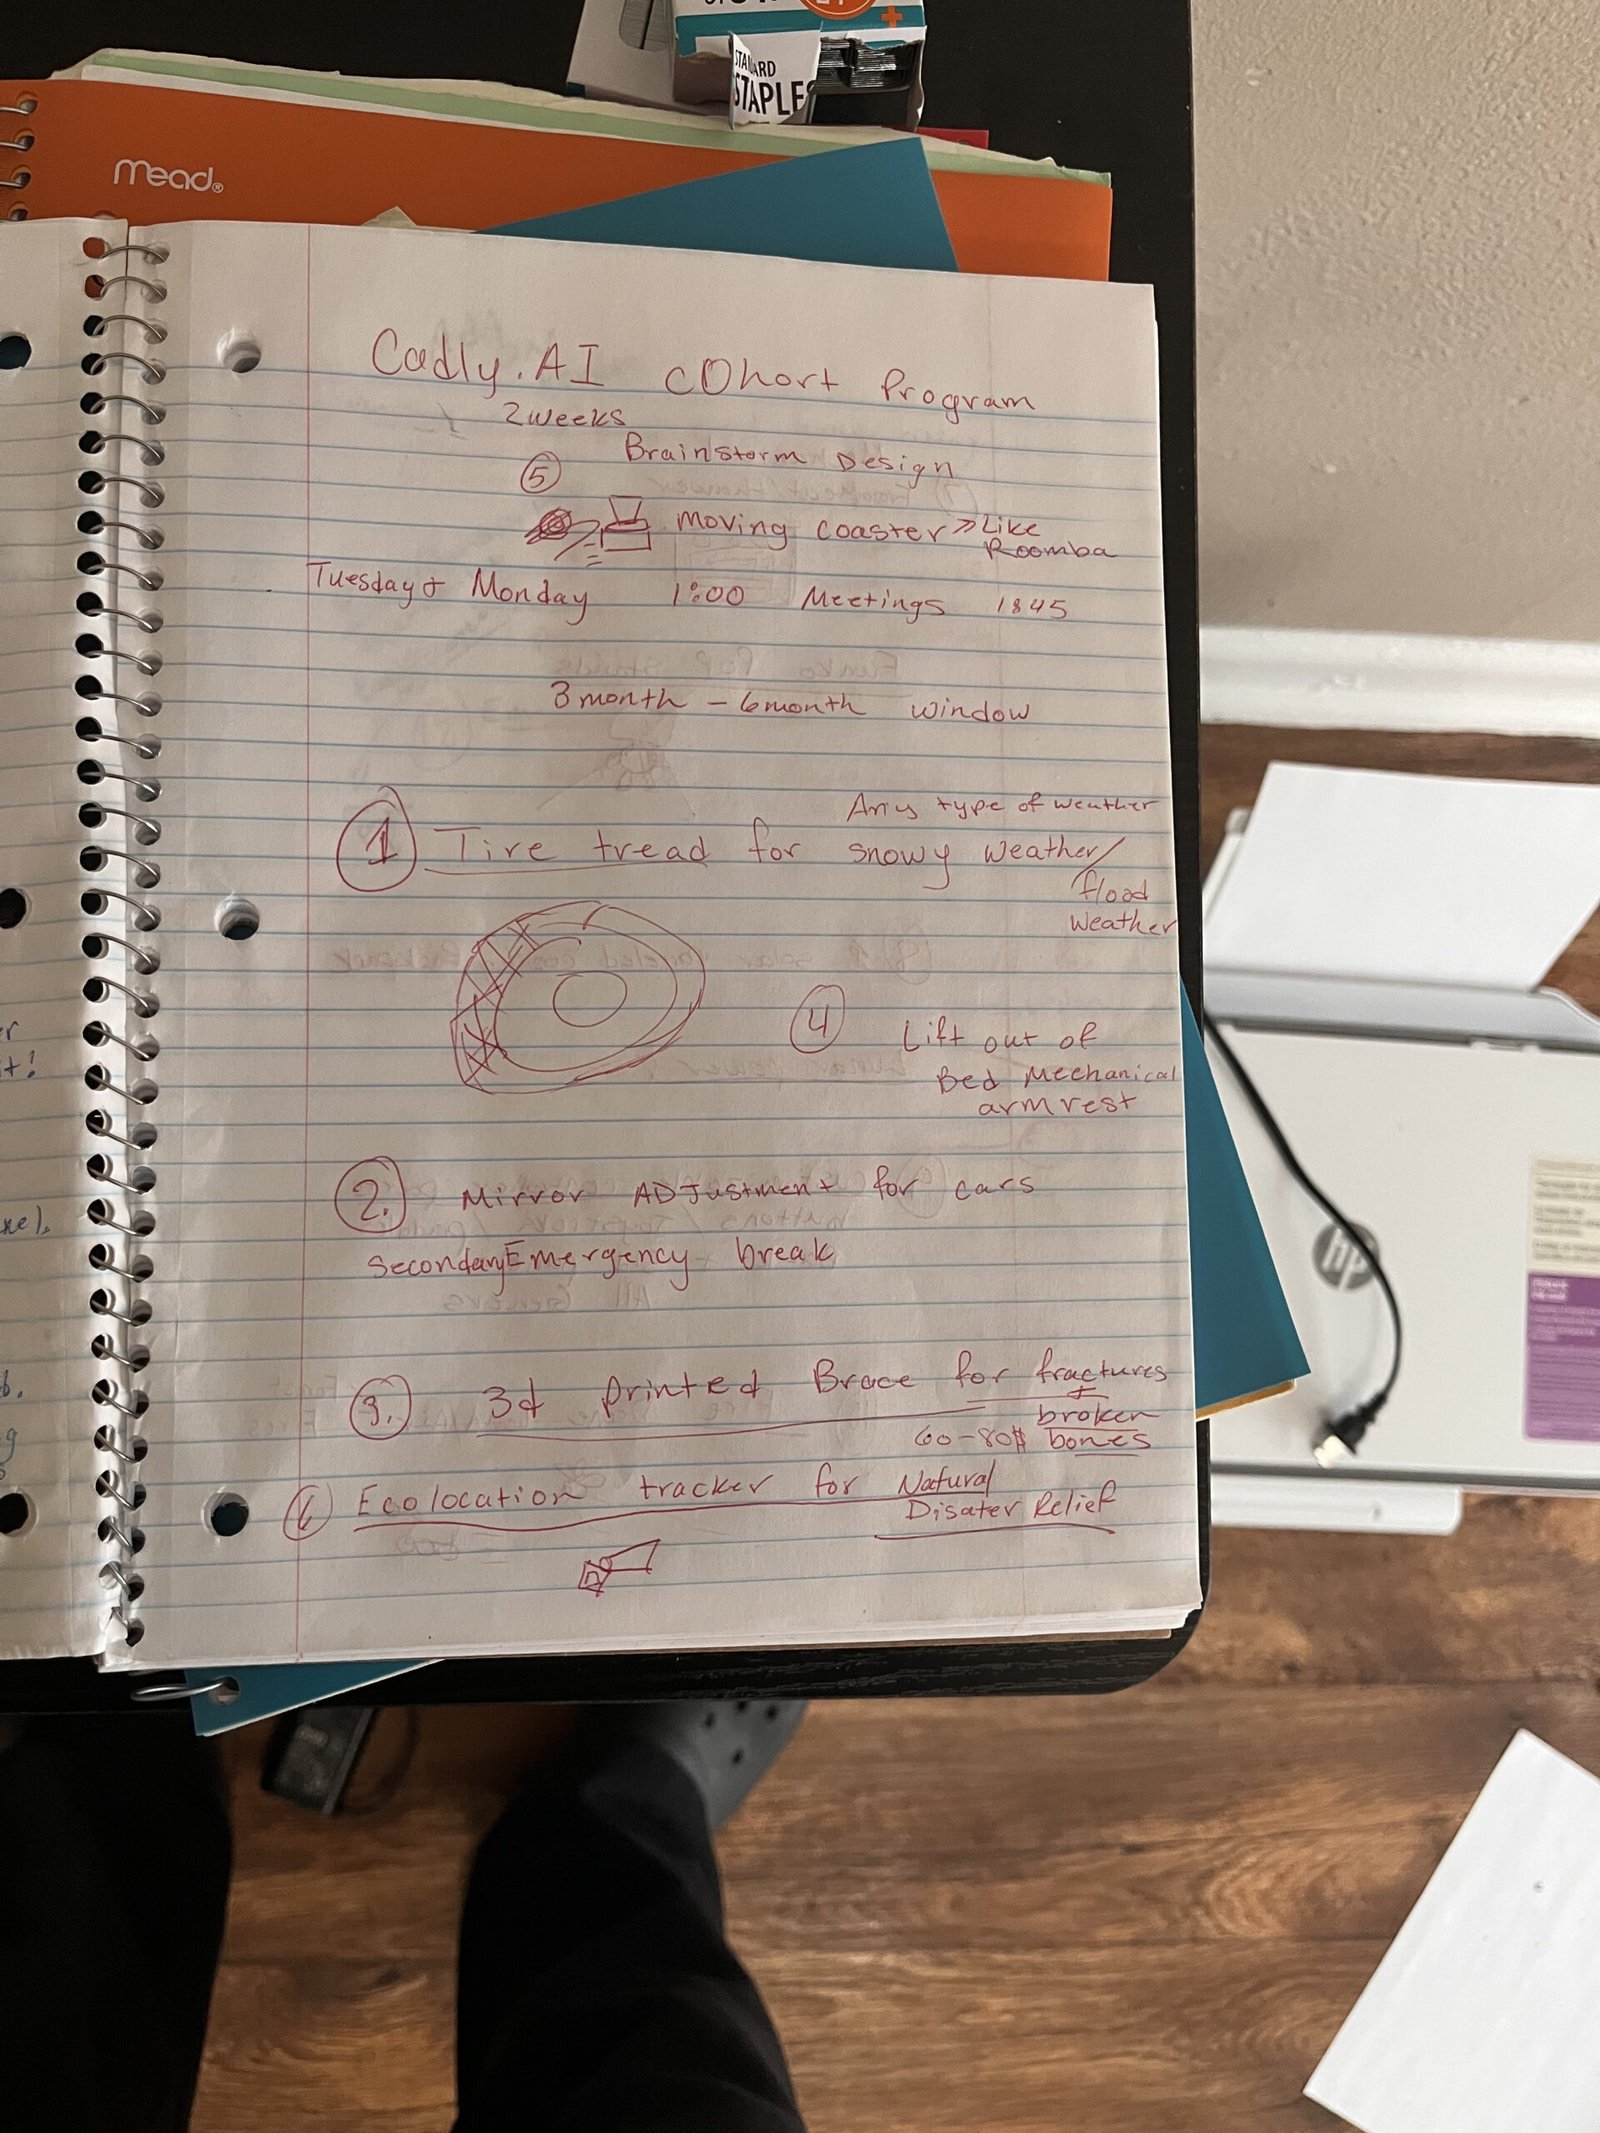 STANDARD
STAPLES
Mead®
Cadly.AI cohort Program
2 weeks
Brainstorm Design
5
moving coaster >> Like
Roomba
Tuesday + Monday 1:00 Meetings 1845
3 month - 6 month window
Any type of weather
1 Tire tread for snowy weather/
flood
weather
4 Lift out of
Bed Mechanical
armrest
2. Mirror ADJustment for cars
Secondary Emergency break
3. 3d printed Brace for fractures
+
broken
60-80$ bones
6 Ecolocation tracker for Natural
Disater Relief
hp